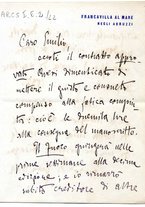 ARCS I.E.2/22
FRANCAVILLA AL MARE
NEGLI ABRUZZI
Caro Emilio,
accetto il contratto appro-
vato. Quasi dimenticavo di
mettere il giusto e consueto
compenso alla fatica compiu-
ta; cioè le duemila lire
alla consegna del manoscritto.
Il Fuoco giungerà nelle
prime settimane alla decima
edizione; e io rimarrò
subito creditore di altre